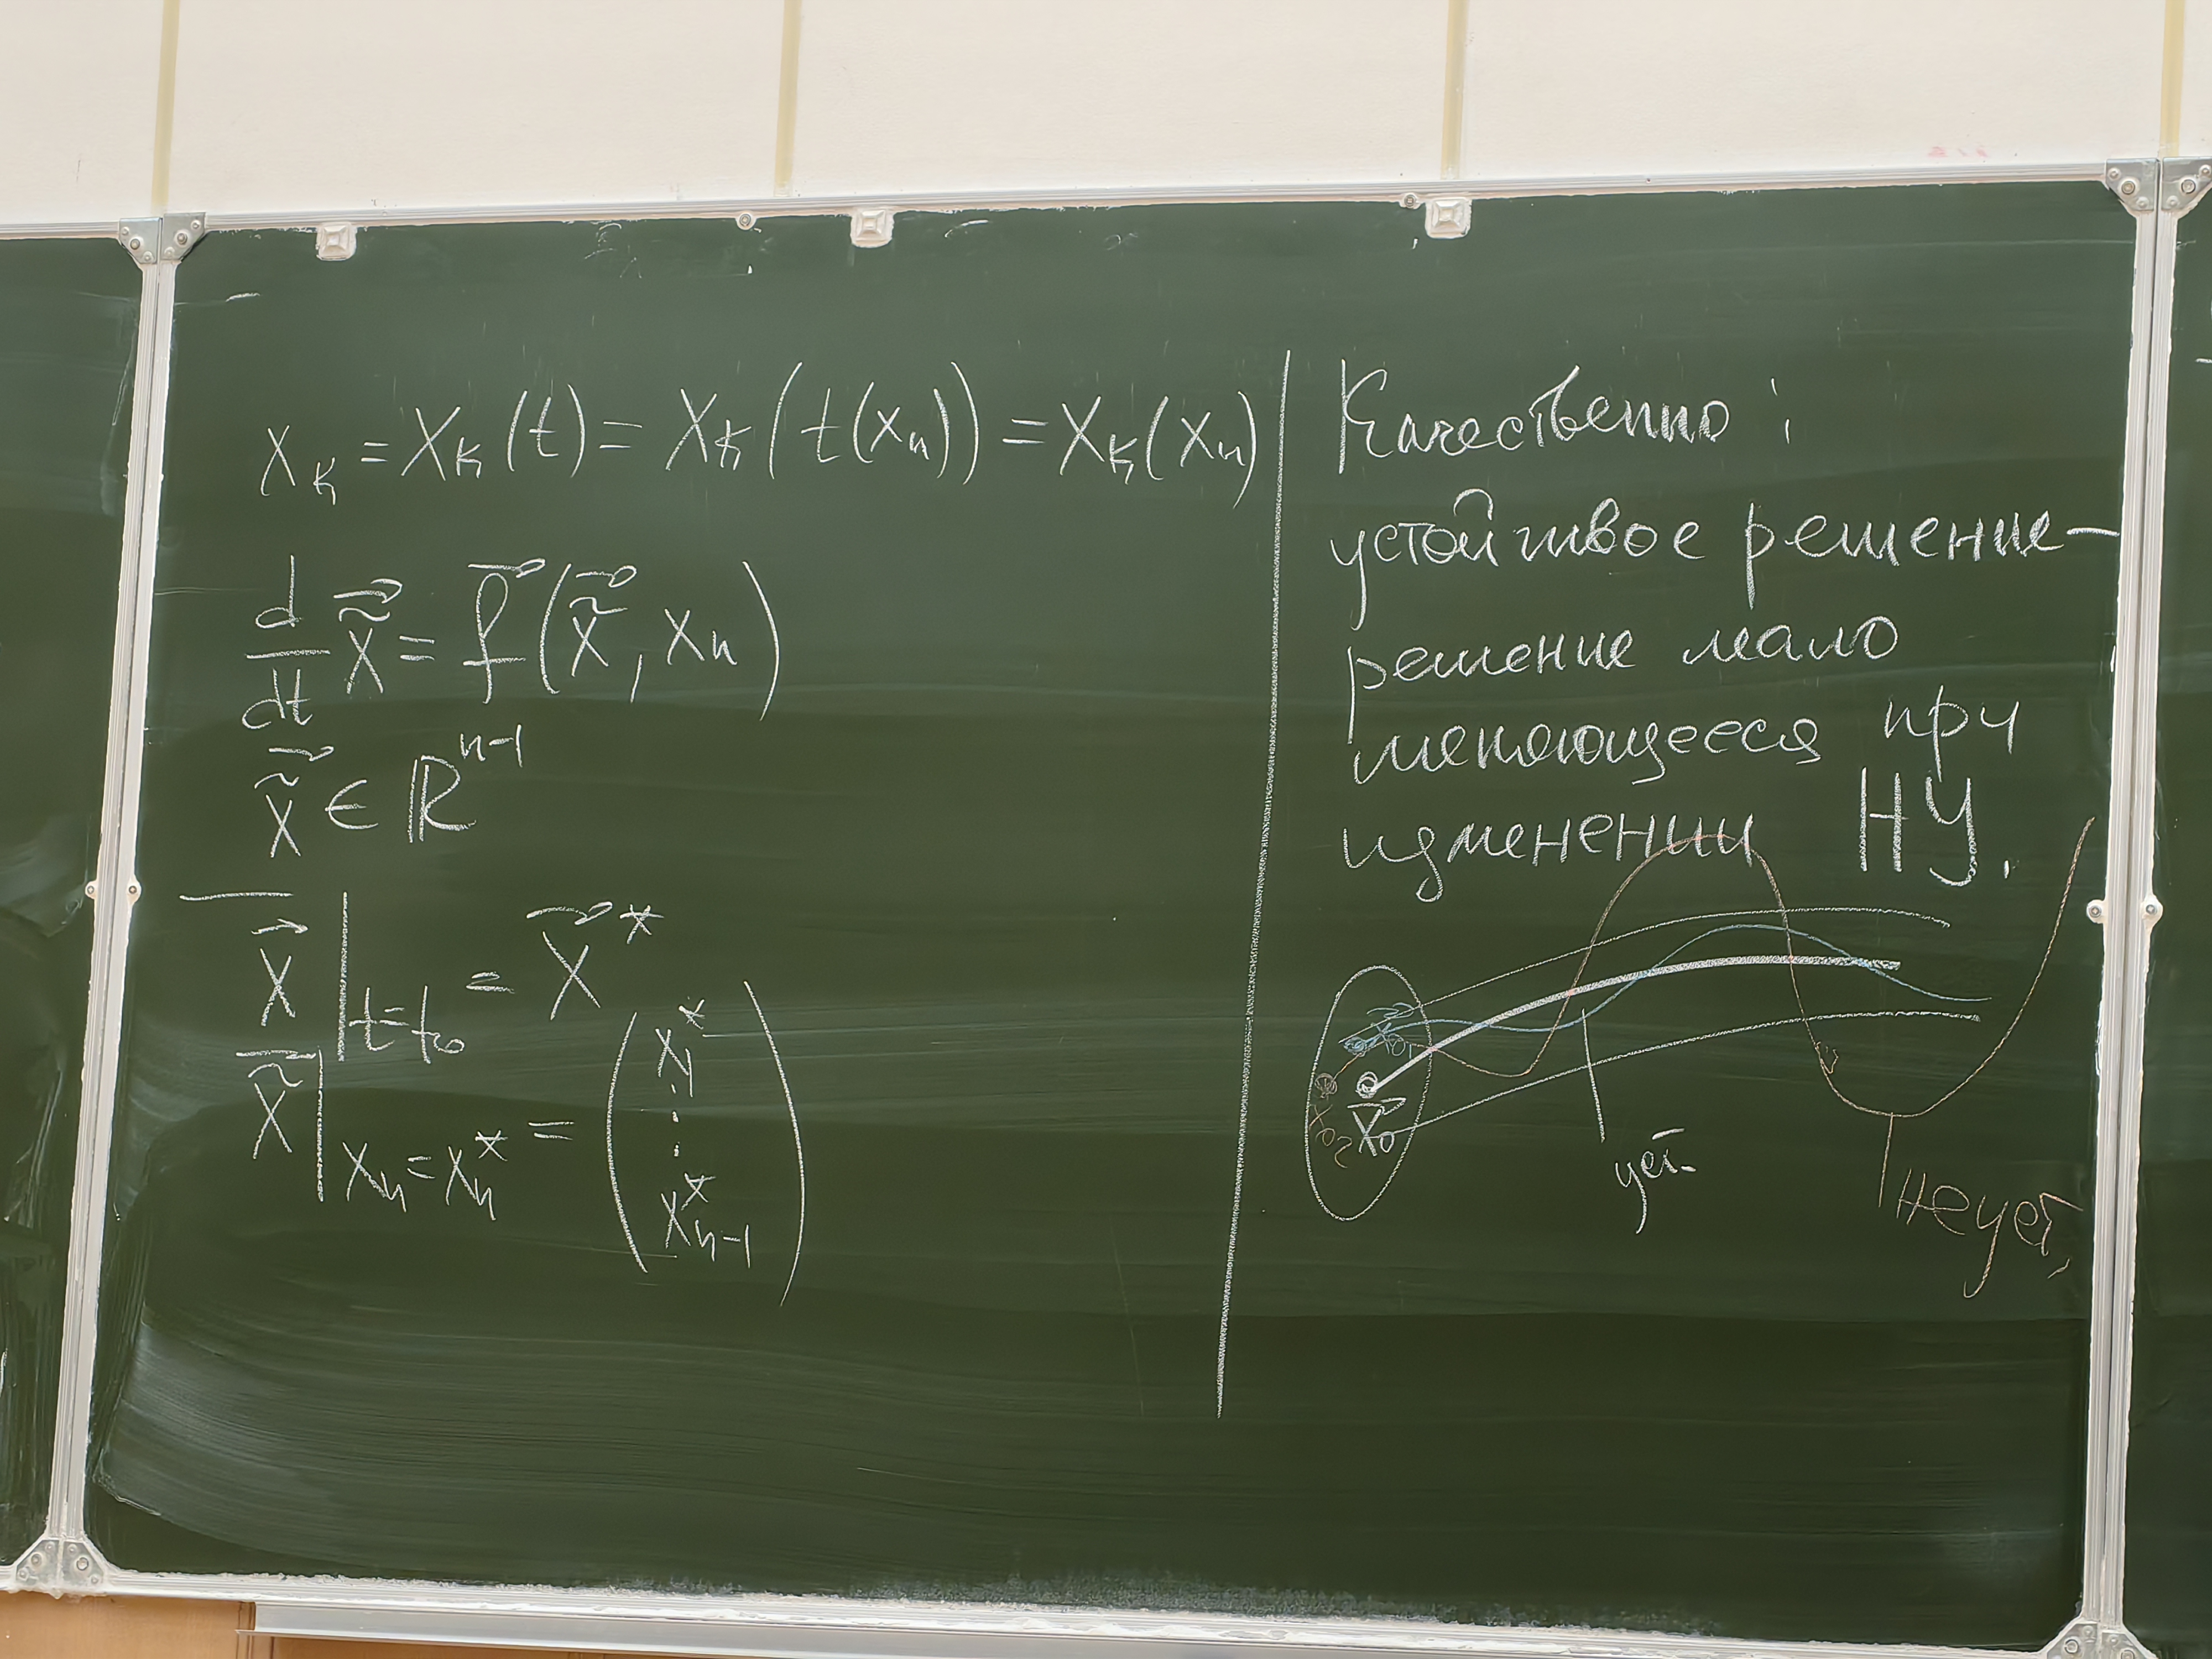 x_к = x_к(t) = x_к(t(x_n)) = x_к(x_n)
d/dt \vec{\tilde{x}} = \vec{f}(\vec{\tilde{x}}, x_n)
\vec{\tilde{x}} ∈ ℝ^{n-1}
\vec{x}|_{t=t_0} = \vec{x}^*
\vec{\tilde{x}}|_{x_n=x_n^*} = (x_1^* ⋮ x_{n-1}^*)
Качественно:
устойчивое решение –
решение мало
меняющееся при
изменении НУ.
\vec{x}_{01}
x_{02} \vec{x}_0
уст.
неуст.